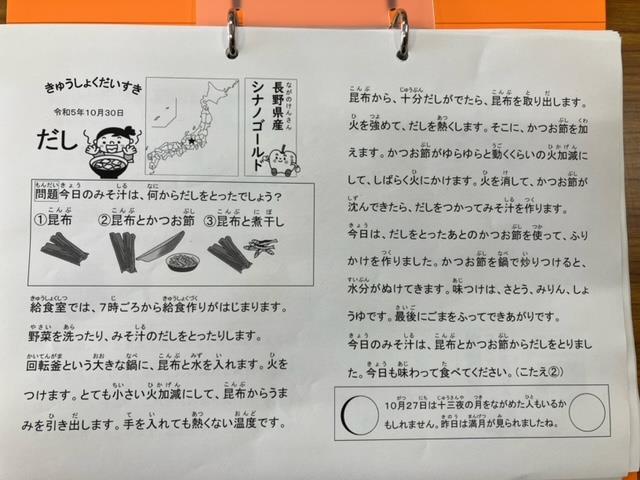 きゅうしょくだいすき
令和5年10月30日
だし
長野県産
シナノゴールド
問題 今日のみそ汁は、何からだしをとったでしょう?
①昆布 ②昆布とかつお節 ③昆布と煮干し
給食室では、7時ごろから給食作りがはじまります。
野菜を洗ったり、みそ汁のだしをとったりします。
回転釜という大きな鍋に、昆布と水を入れます。火を
つけます。とても小さい火加減にして、昆布からうま
みを引き出します。手を入れても熱くない温度です。
昆布から、十分だしがでたら、昆布を取り出します。
火を強めて、だしを熱くします。そこに、かつお節を加
えます。かつお節がゆらゆらと動くくらいの火加減に
して、しばらく火にかけます。火を消して、かつお節が
沈んできたら、だしをつかってみそ汁を作ります。
今日は、だしをとったあとのかつお節を使って、ふり
かけを作りました。かつお節を鍋で炒りつけると、
水分がぬけてきます。味つけは、さとう、みりん、しょ
うゆです。最後にごまをふってできあがりです。
今日のみそ汁は、昆布とかつお節からだしをとりまし
た。今日も味わって食べてください。(こたえ②)
10月27日は十三夜の月をながめた人もいるか
もしれません。昨日は満月が見られましたね。